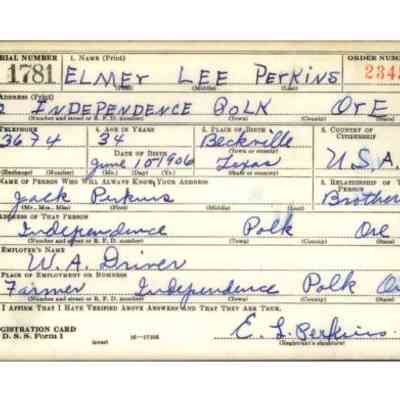 SERIAL NUMBER 1. NAME (Print) ORDER NUMBER
1781 ELMEY LEE PERKINS 234
(First) (Middle) (Last)
ADDRESS (Print)
INDEPENDENCE POLK ORE
(Number and street or R. F. D. number) (Town) (County) (State)
TELEPHONE 4. AGE IN YEARS 5. PLACE OF BIRTH 6. COUNTRY OF CITIZENSHIP
3674 34 Beckville
DATE OF BIRTH (Town or county)
June 10 1906 Texas U.S.A.
(Exchange) (Number) (Mo.) (Day) (Yr.) (State or country)
NAME OF PERSON WHO WILL ALWAYS KNOW YOUR ADDRESS 8. RELATIONSHIP OF THAT PERSON
Jack Perkins Brother
(Mr., Mrs., Miss) (First) (Middle) (Last)
ADDRESS OF THAT PERSON
Independence Polk Ore
(Number and street or R. F. D. number) (Town) (County) (State)
EMPLOYER'S NAME
W. A. Driver
PLACE OF EMPLOYMENT OR BUSINESS
Farmer Independence Polk Or
(Number and street or R. F. D. number) (Town) (County) (State)
I AFFIRM THAT I HAVE VERIFIED ABOVE ANSWERS AND THAT THEY ARE TRUE.
REGISTRATION CARD E. L. Perkins
D. S. S. Form 1 (over) (Registrant's signature)